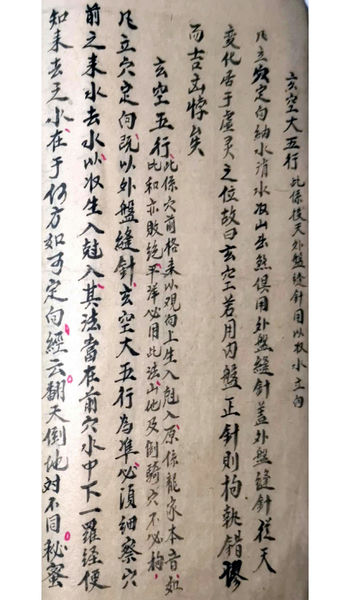 玄空大五行 此係後天外盤縫針用以收水立向
凡立穴定向納水消水收山出煞俱用外盤縫針蓋外盤縫針從天
變化居于虛灵之位故曰玄空若用内盤正針則拘執錯膠
而吉凶悖矣
玄空五行 此係穴前格來水观向上生入尅入原係龍家本音如
比和亦敗絕平洋必用此法山地及倒騎穴不必拘
凡立穴定向既以外盤縫針玄空大五行為准必須細察穴
前之来水去水以收生入尅入其法當在前穴水中下一羅经便
知来去之水在于何方如可定向經云翻天倒地对不同秘蜜